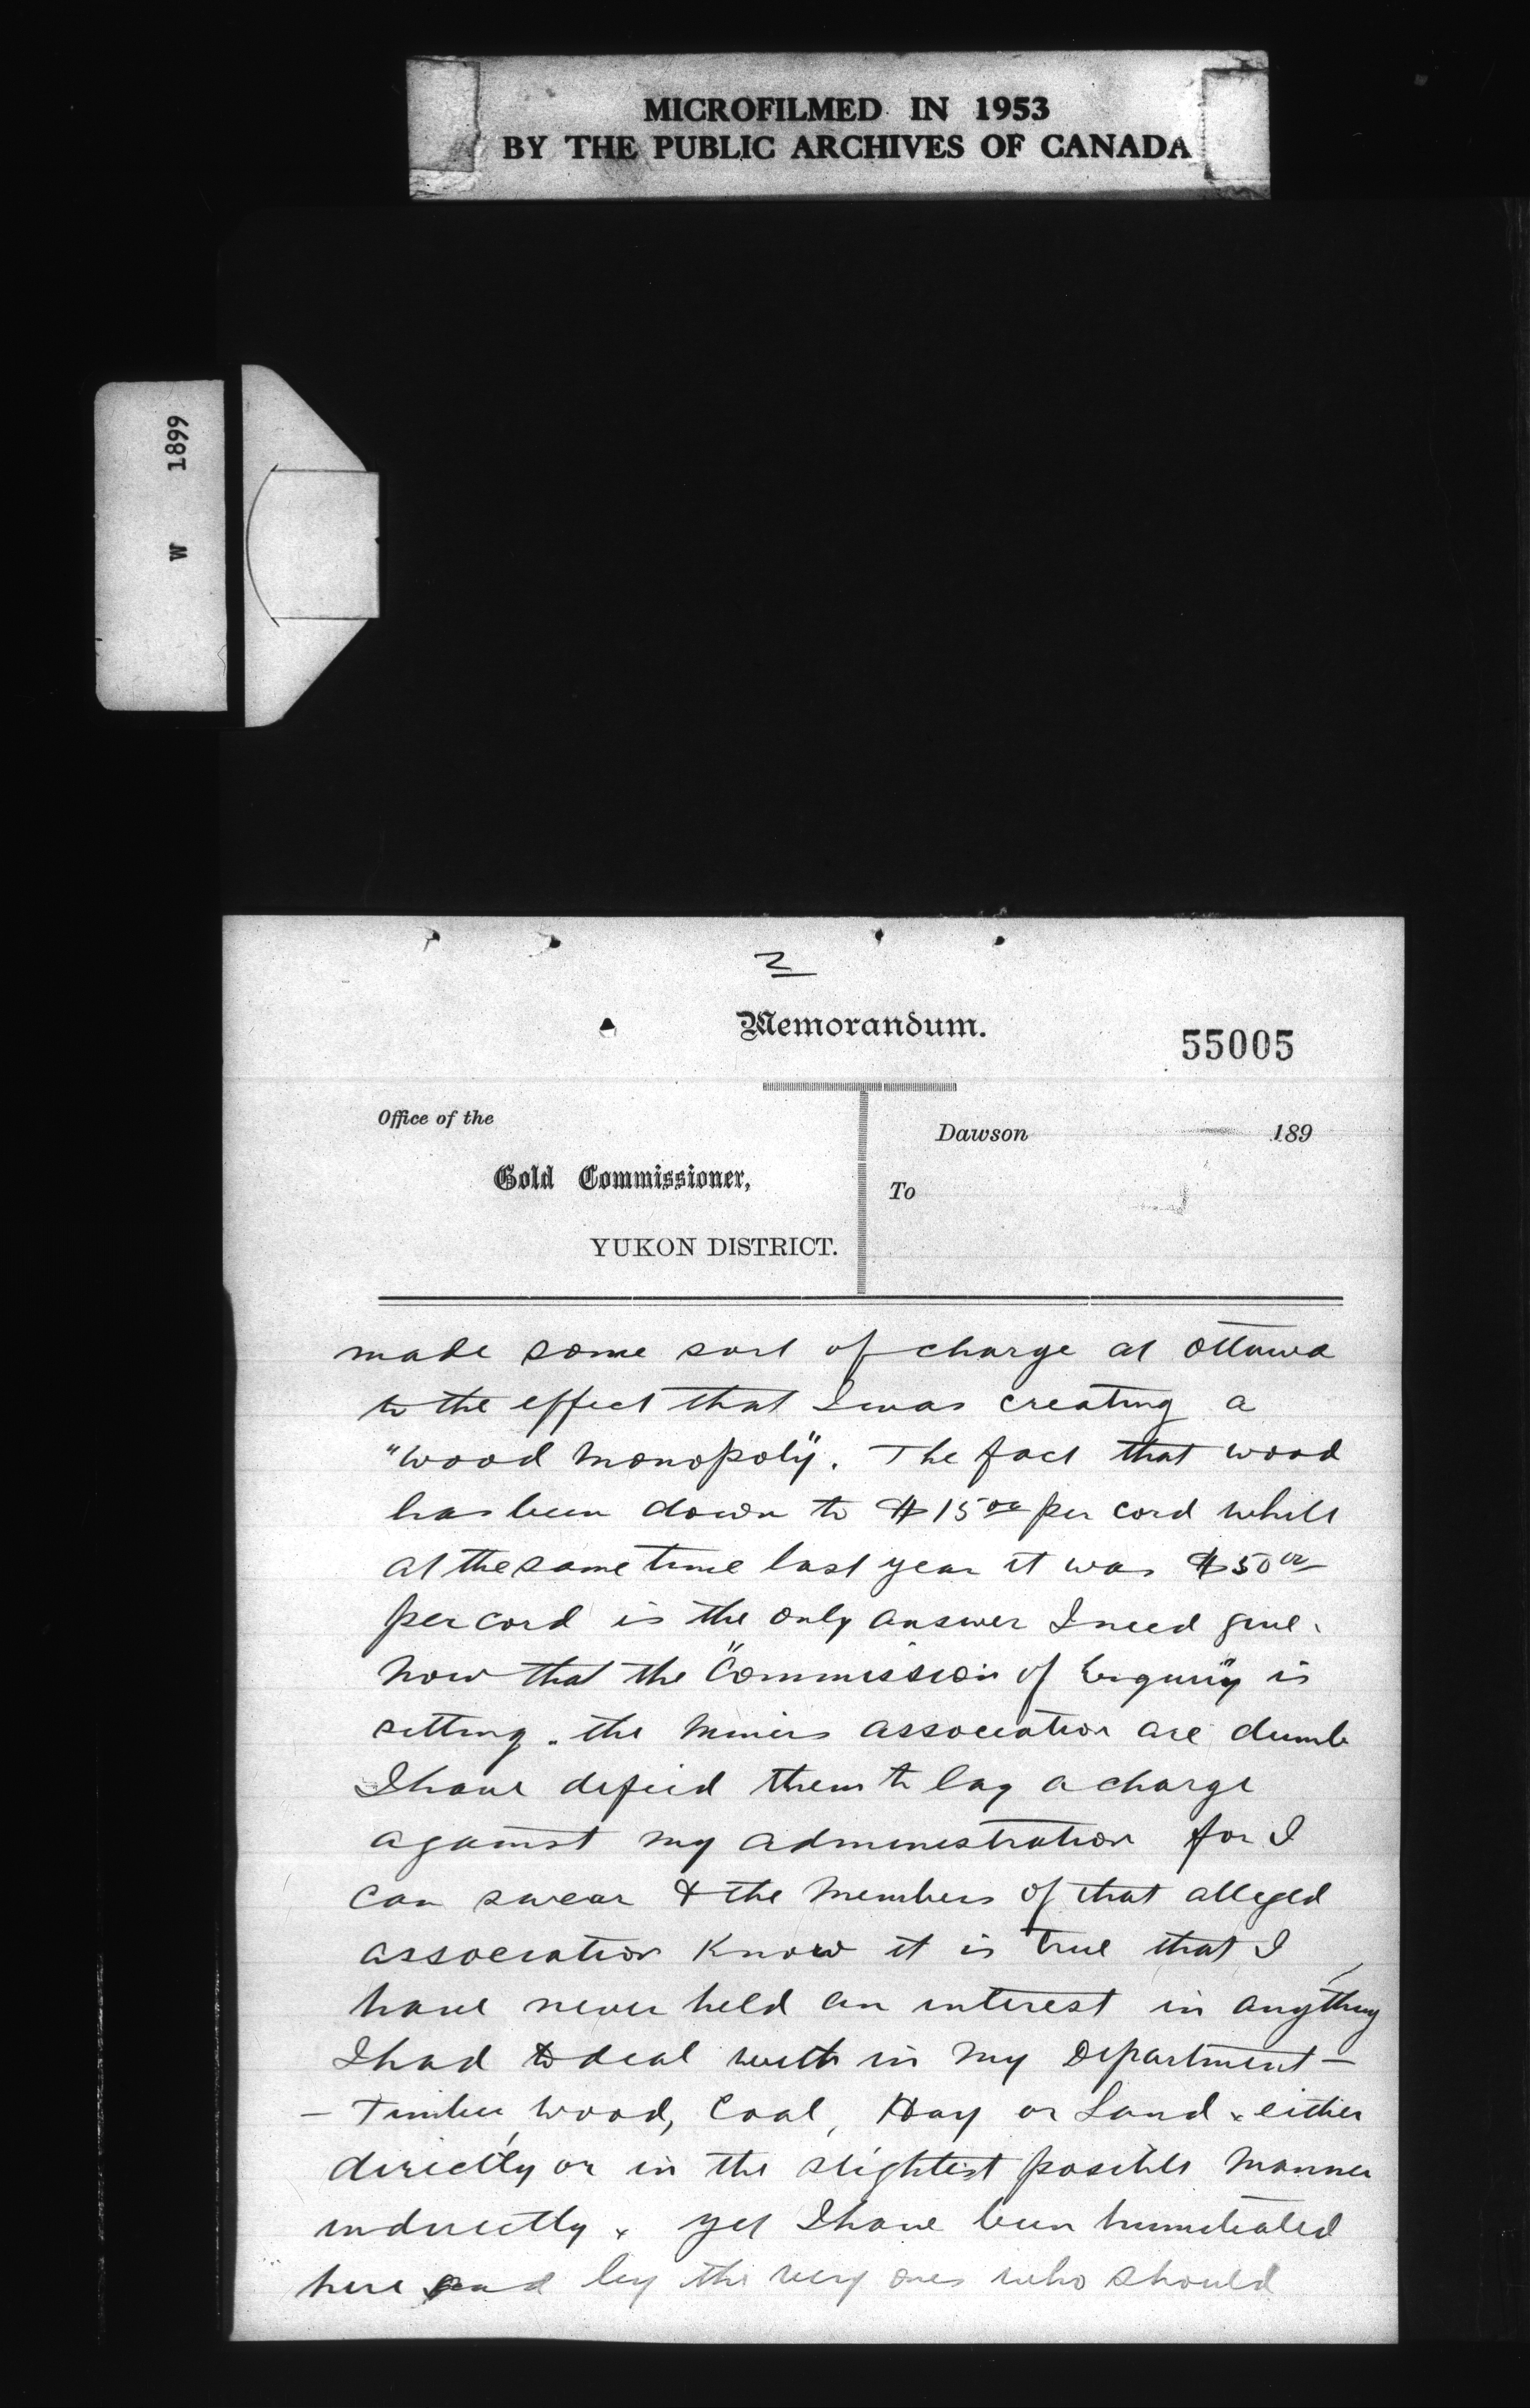 MICROFILMED IN 1953
BY THE PUBLIC ARCHIVES OF CANADA
W 1899
2
Memorandum.
55005
Office of the
Gold Commissioner,
YUKON DISTRICT.
Dawson 189
To
made some sort of charge at Ottawa
to the effect that I was creating a
"wood monopoly". The fact that wood
has been down to $15 00 per cord whilst
at the same time last year it was $50 00
per cord is the only answer I need give.
Now that the "Commission of Enquiry" is
sitting. the Miners association are dumb
I have defied them to lay a charge
against my administration for I
can swear & the Members of that alleged
association know it is true that I
have never held an interest in anything
I had to deal with in my Department —
— Timber, Wood, Coal, Hay or Land. either
directly or in the slightest possible manner
indirectly. yet I have been humiliated
here and by the very ones who should